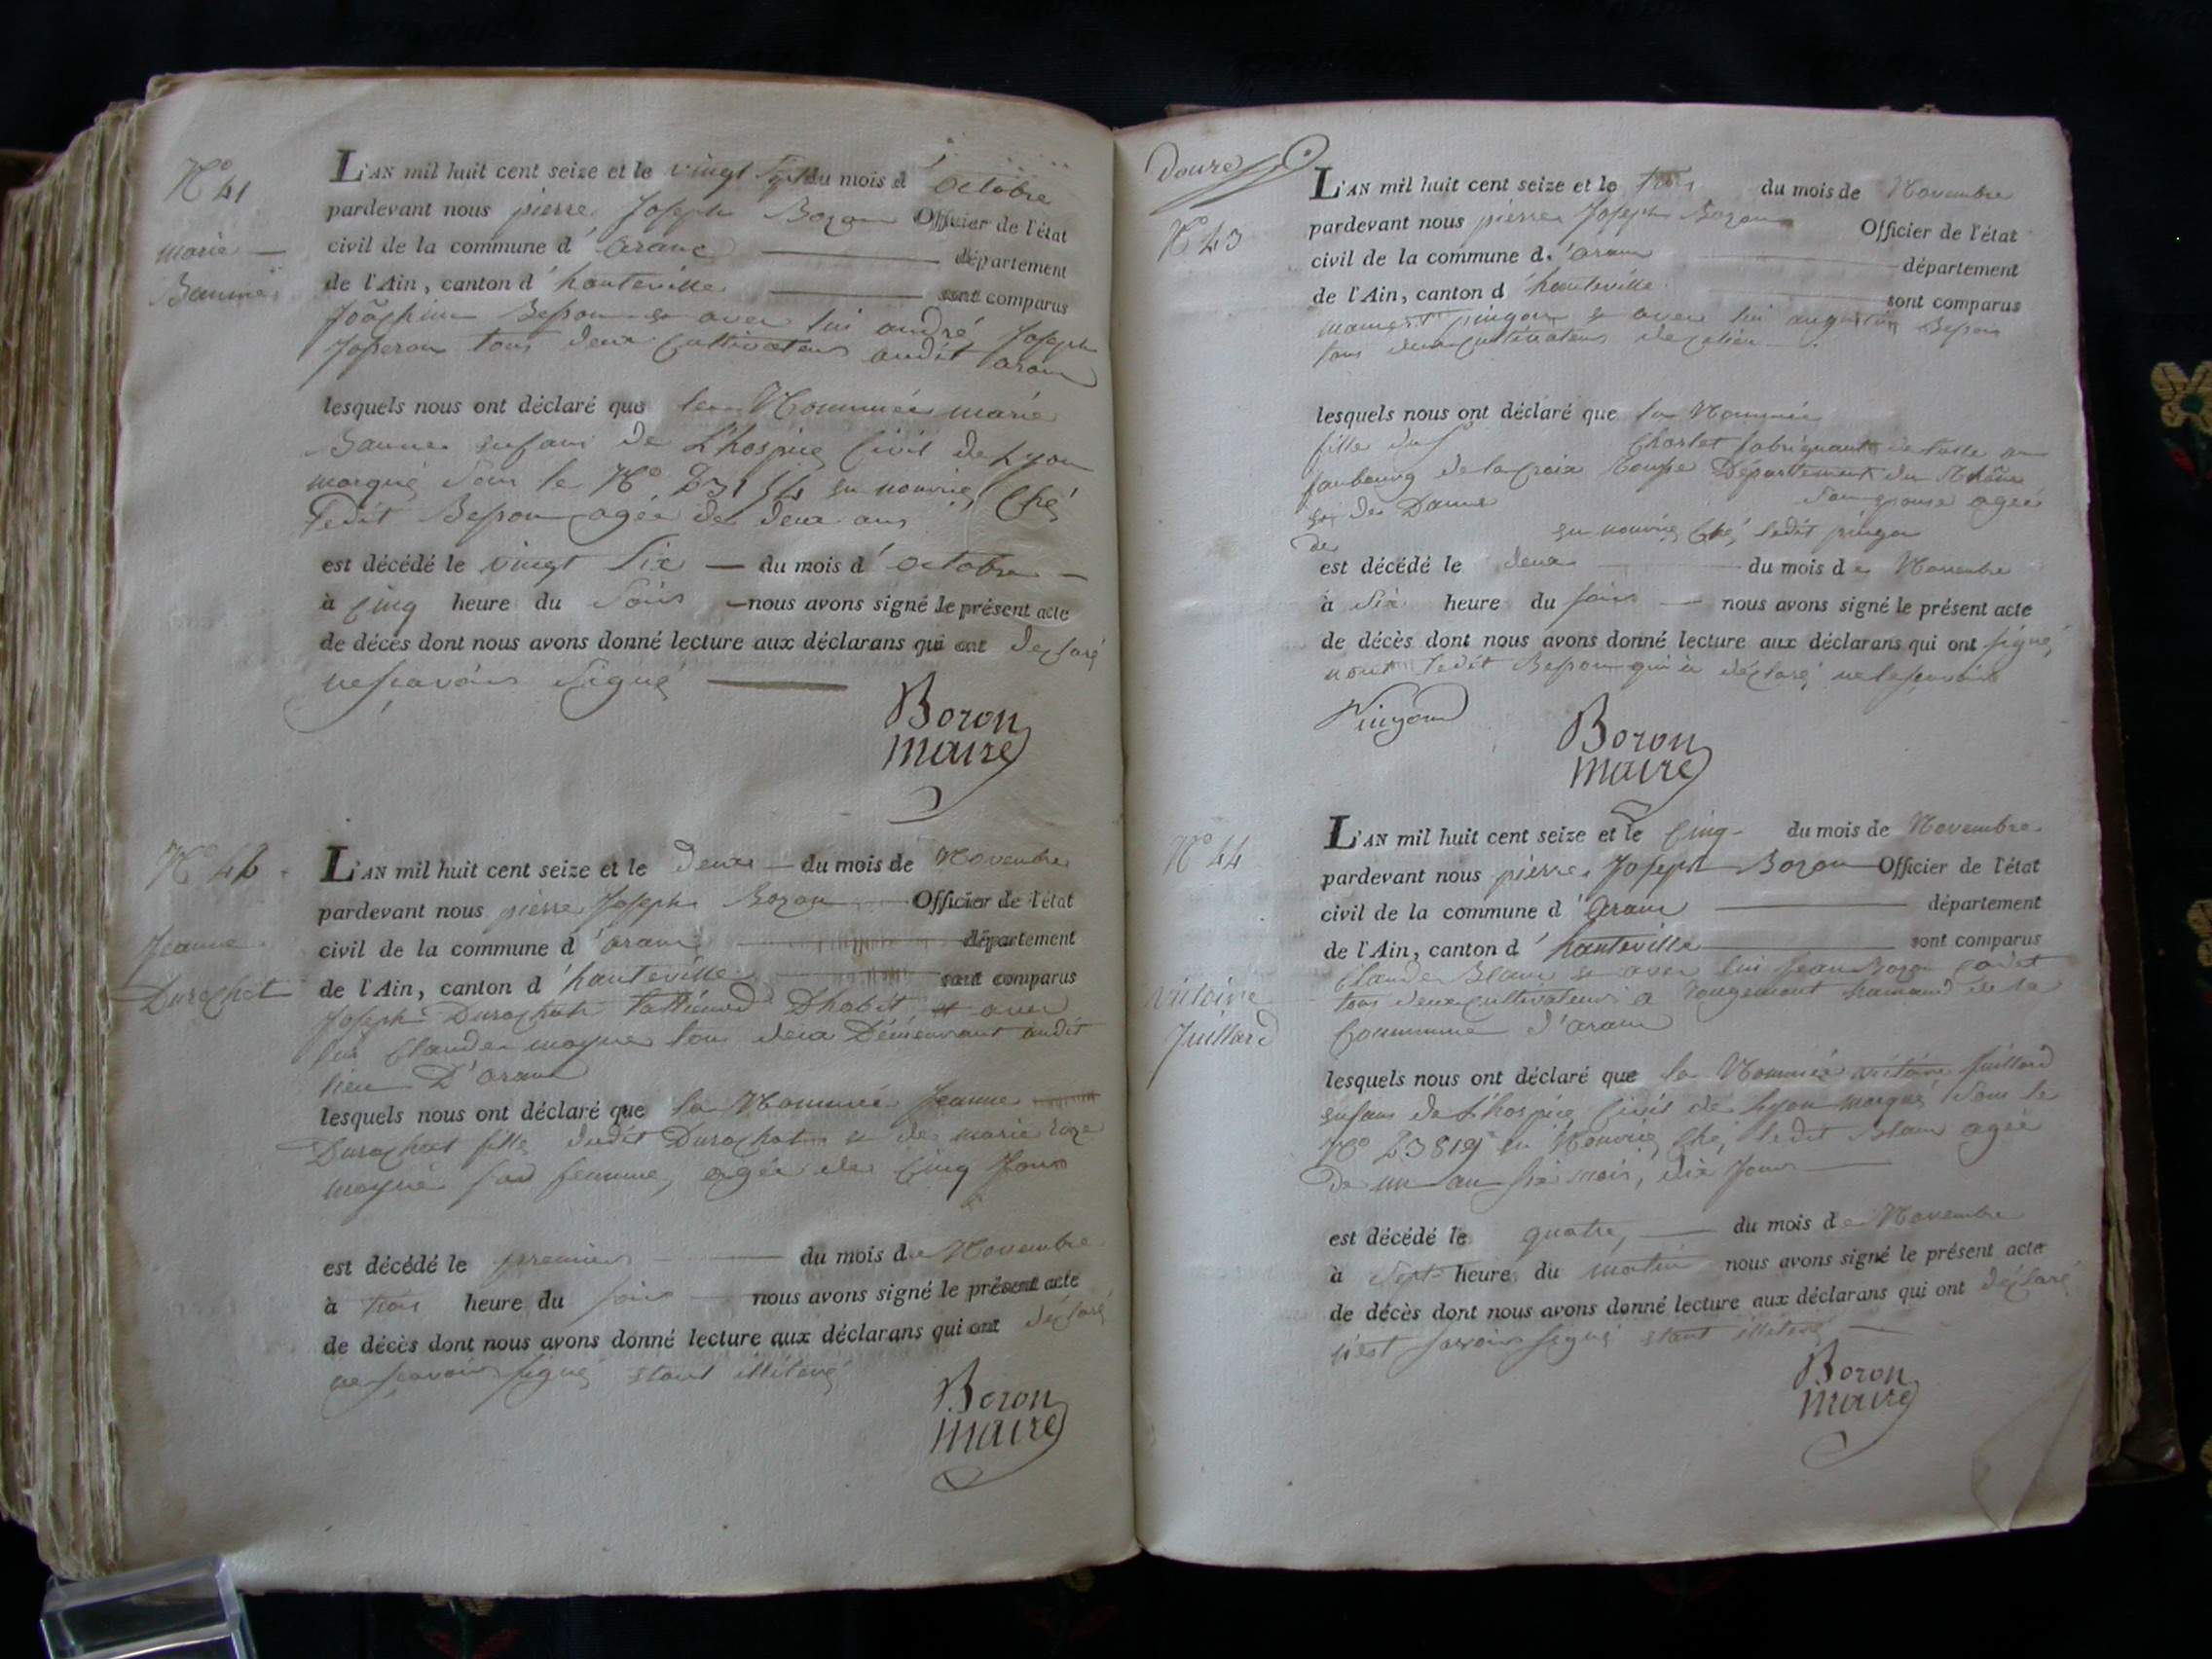 N° 41
marie
L'AN mil huit cent seize et le vingt du mois d octobre
pardevant nous pierre Joseph Bozon Officier de l'état
civil de la commune d' aranc département
de l'Ain, canton d' hauteville sont comparus
Joachim Besson et avec lui andré Joseph
tous deux Cultivateurs audit aranc
lesquels nous ont déclaré que Nommée marie
enfant de L'hospice Civil de Lyon
marqué Sous le N° en nourrice Ché
Ledit Besson agée de deux ans
est décédé le vingt Six du mois d' octobre
à Cinq heure du Soir nous avons signé le présent acte
de décès dont nous avons donné lecture aux déclarans qui ont déclaré
ne scavoir Signé
Bozon
maire
N° 42
Jeanne
Durochat
L'AN mil huit cent seize et le deux du mois de Novembre
pardevant nous pierre Joseph Bozon Officier de l'état
civil de la commune d' aranc département
de l'Ain, canton d' hauteville sont comparus
Joseph Durochat D'habit et avec
lui Claude moyne tous deux Demeurant audit
lieu D'aranc
lesquels nous ont déclaré que la Nommée Jeanne
Durochat fille dudit Durochat et de marie
moyne sa femme, agée de Cinq Jours
est décédé le premier du mois de Novembre
à trois heure du soir nous avons signé le présent acte
de décès dont nous avons donné lecture aux déclarans qui ont déclaré
ne scavoir signé étant
Bozon
maire
Douze
N° 43
L'AN mil huit cent seize et le trois du mois de Novembre
pardevant nous pierre Joseph Bozon Officier de l'état
civil de la commune d' aranc département
de l'Ain, canton d' hauteville sont comparus
pingon et avec lui augustin Besson
tous deux Cultivateurs
lesquels nous ont déclaré que la Nommée
fille du S Charlet fabriquant de tulle au
faubourg de la Croix Rousse Département du Rhône
et de Dame Son epouse agée
de en nourrice Ché, ledit pingon
est décédé le deux du mois de Novembre
à Six heure du soir nous avons signé le présent acte
de décès dont nous avons donné lecture aux déclarans qui ont signé,
ledit Besson qui a déclaré ne le scavoir
Pingon
Bozon
maire
N° 44
victoire
Juillard
L'AN mil huit cent seize et le Cinq du mois de Novembre
pardevant nous pierre Joseph Bozon Officier de l'état
civil de la commune d' aranc département
de l'Ain, canton d' hauteville sont comparus
Claude Blanc et avec lui Jean
tous deux Cultivateurs a rougemont hameau de la
Commune d'aranc
lesquels nous ont déclaré que la Nommée victoire Juillard
enfant de L'hospice Civil de Lyon marqué Sous le
N° 23819 en Nourrice Ché, ledit Blanc agée
De un an six mois, dix Jours
est décédé le quatre, du mois de Novembre
à Sept heure du matin nous avons signé le présent acte
de décès dont nous avons donné lecture aux déclarans qui ont déclaré
signé étant
Bozon
maire